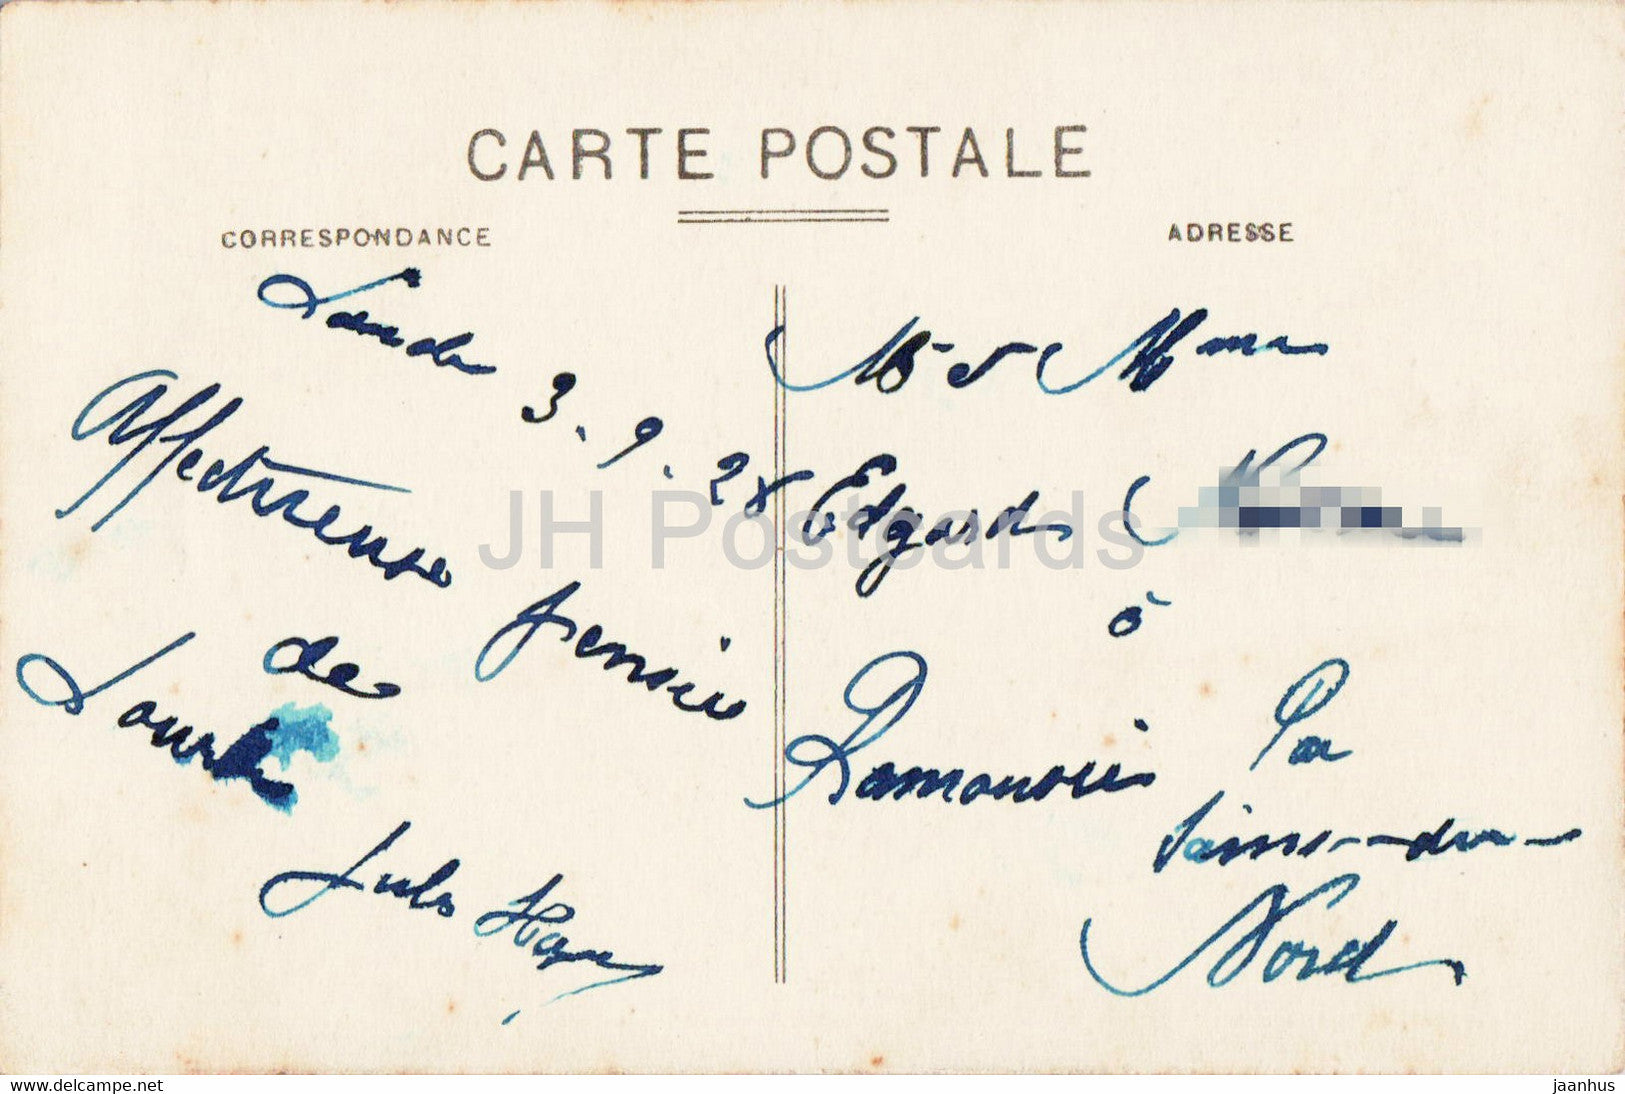 CARTE POSTALE
CORRESPONDANCE
ADRESSE
3.9.28
Affectueuse pensée
de
Lourdes
Jules
Mr et Mme
Edgard
à
La
Nord
JH Postcards
www.delcampe.net
jaanhus